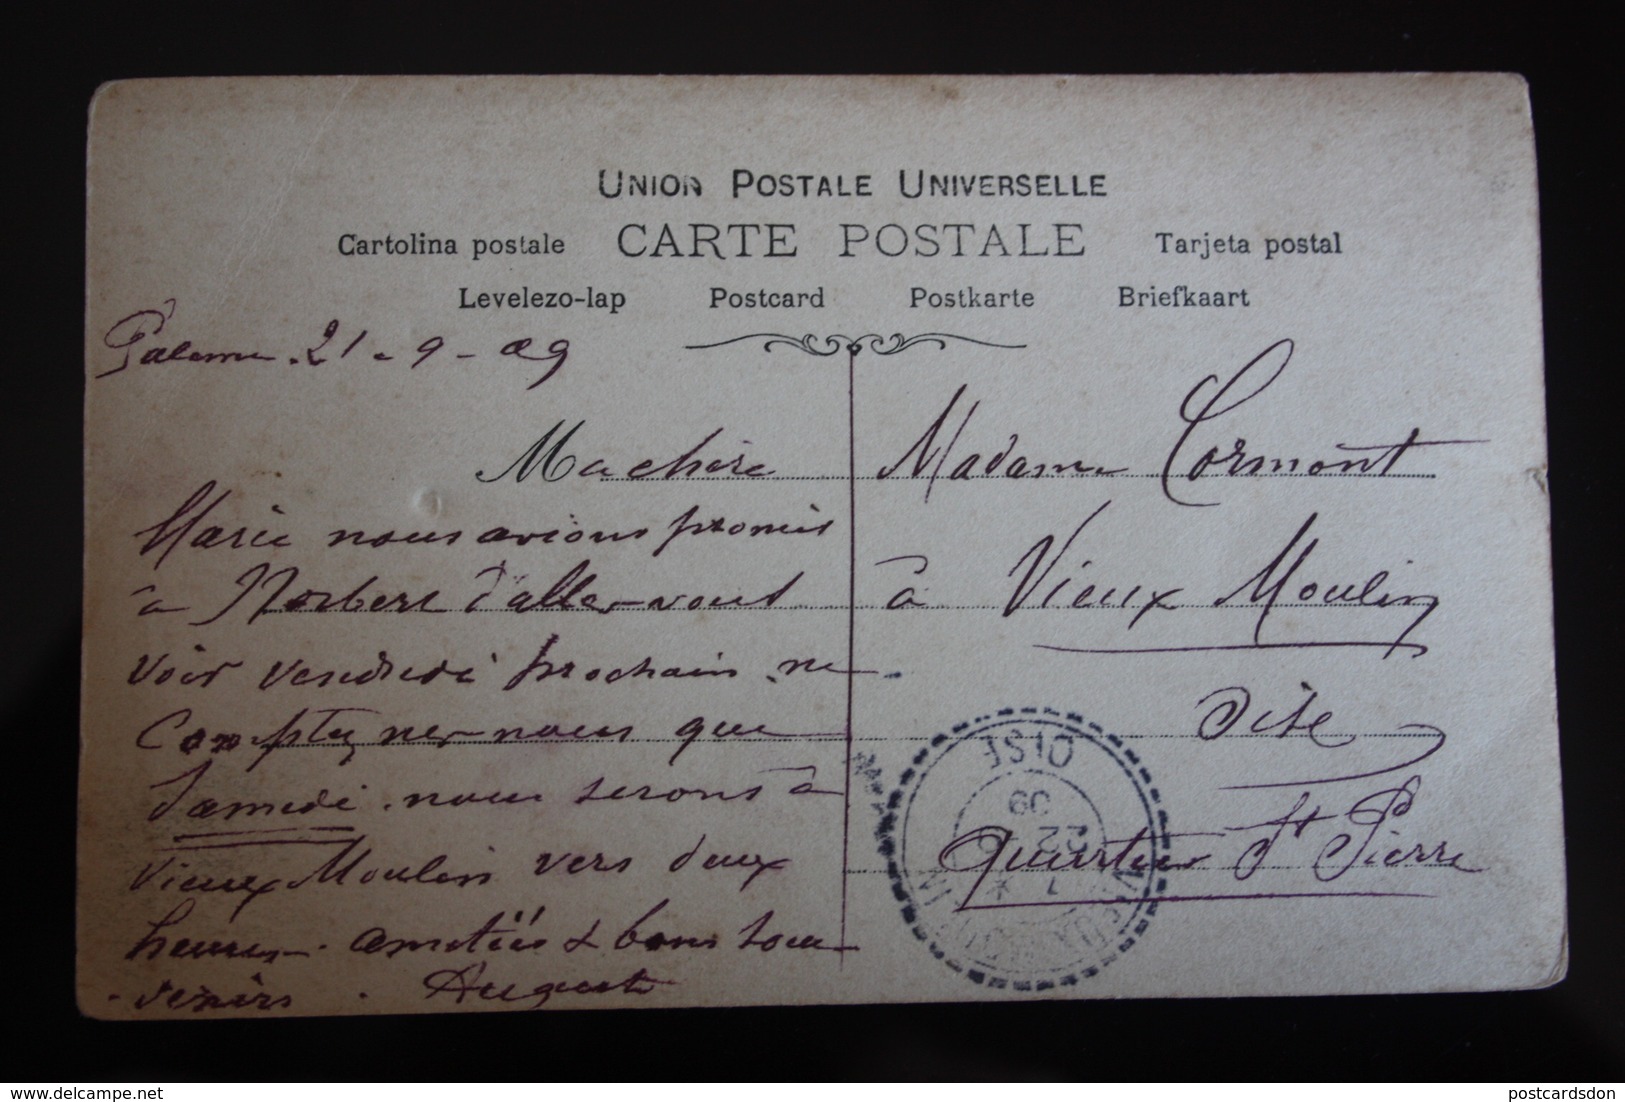 UNION POSTALE UNIVERSELLE
Cartolina postale CARTE POSTALE Tarjeta postal
Levelezo-lap Postcard Postkarte Briefkaart
21-9-09
Ma chère
Marie nous avions promis
à Norbert d'aller vous
voir vendredi prochain ne
comptez sur nous que
Samedi. nous serons à
vieux Moulin vers deux
heures. amitiés & bons sou-
-venirs. Auguste
Madame Cormont
à Vieux Moulin
Oise
quartier St Pierre
OISE
22
09
delcampe.net
postcardsdon